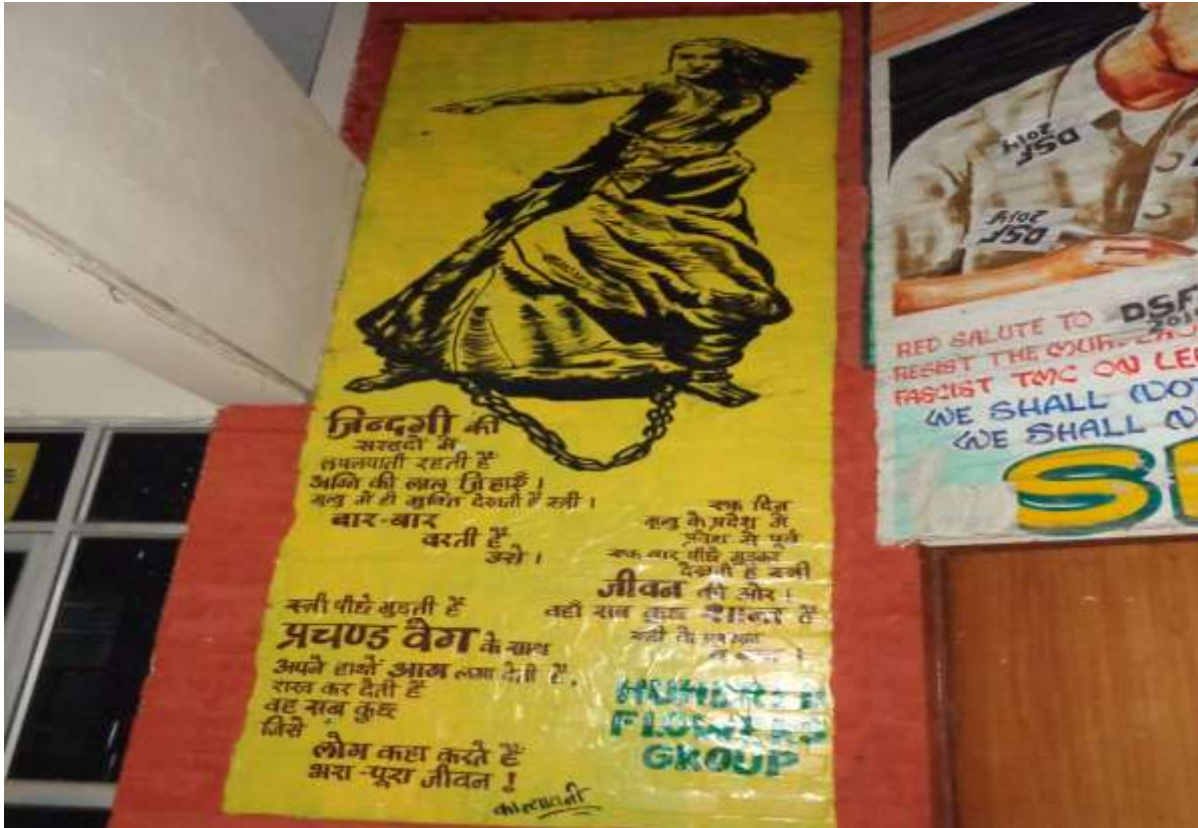 ज़िन्दगी की
सरहदों में
लपलपाती रहती हैं
अग्नि की लाल जिह्वाएँ।
मृत्यु में ही मुक्ति देखती है स्त्री।
बार-बार
वरती है
उसे।
एक दिन
मृत्यु के प्रदेश में
प्रवेश से पूर्व
एक बार पीछे मुड़कर
देखती है स्त्री
जीवन की ओर।
वहाँ सब कुछ शान्त है
स्त्री पीछे मुड़ती है
प्रचण्ड वेग के साथ
अपने हाथों आग लगा देती है,
राख कर देती है
वह सब कुछ
जिसे
लोग कहा करते हैं
भरा-पूरा जीवन!
कात्यायनी
HUNDRED
FLOWERS
GROUP
DSF
2014
2014
DSF
RED SALUTE TO DSF
RESIST THE
FASCIST TMC ON
WE SHALL
WE SHALL